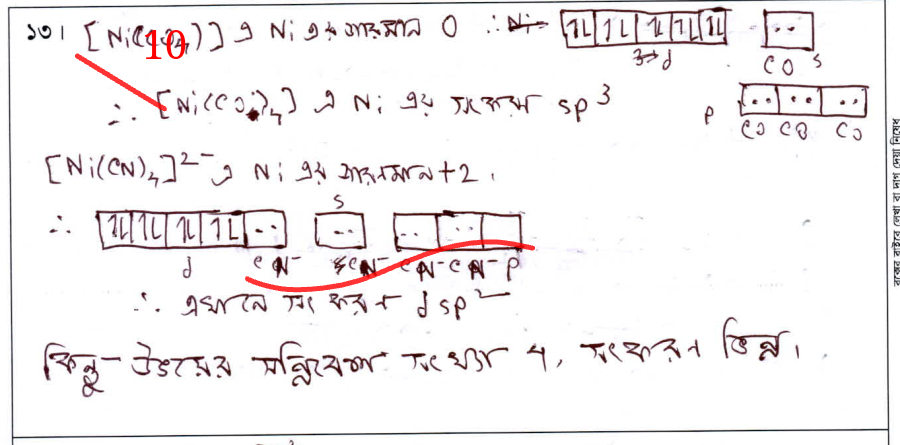 ১৩। [Ni(CO)₄] এ Ni এর জারণমান 0 ∴ 1L 1L 1L 1L 1L ..
10
3d CO s
∴ [Ni(CO)₄] এ Ni এর সংকরণ sp³ p .. .. ..
CO CO CO
[Ni(CN)₄]²⁻ এ Ni এর জারনমান +2।
s
∴ 1L 1L 1L 1L .. .. .. ..
d CN⁻ CN⁻ CN⁻ CN⁻ p
∴ এখানে সংকরণ dsp²
কিন্তু উভয়ের সন্নিবেশ সংখ্যা 4, সংকরণ ভিন্ন।
বক্সের বাইরে লেখা বা দাগ দেয়া নিষেধ